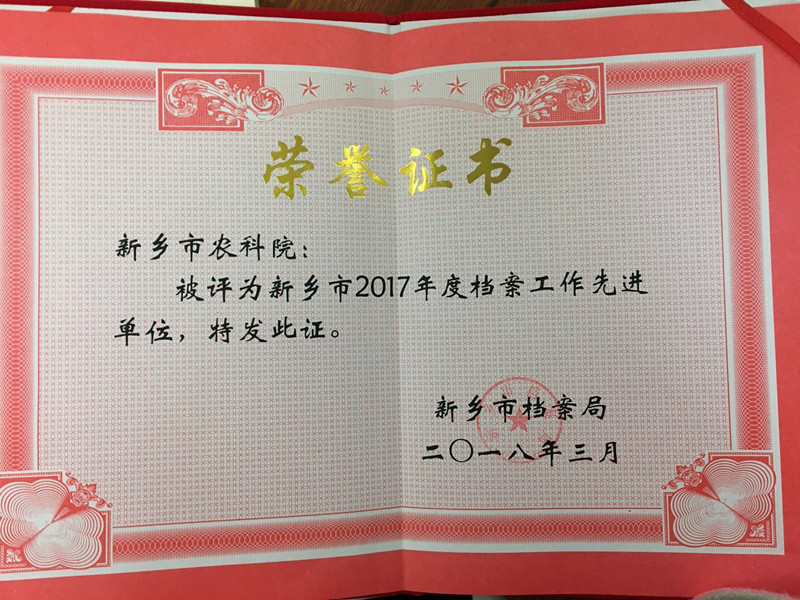 荣誉证书
新乡市农科院：
被评为新乡市2017年度档案工作先进
单位，特发此证。
新乡市档案局
二〇一八年三月